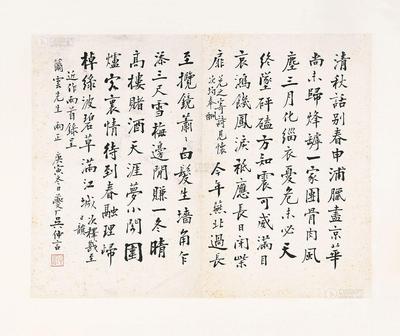 清秋話別春申浦臘盡京華
尚未歸烽罅一家團骨肉風
塵三月化緇衣憂危未必天
終墜砰磕方知震可威滿目
哀鴻饑鳳淚祇應長日閉柴
扉 兌之寄詩見懷次韵奉酬 今年無北過長
至攬鏡蕭蕭白髮生墻角乍
添三尺雪梅邊閒賺一冬晴
高樓賭酒天涯夢小閣圍
爐客裏情待到春融理歸
棹綠波碧草滿江城 次釋戡至日韵
近作兩首錄呈
雲先生兩正 庚寅冬日